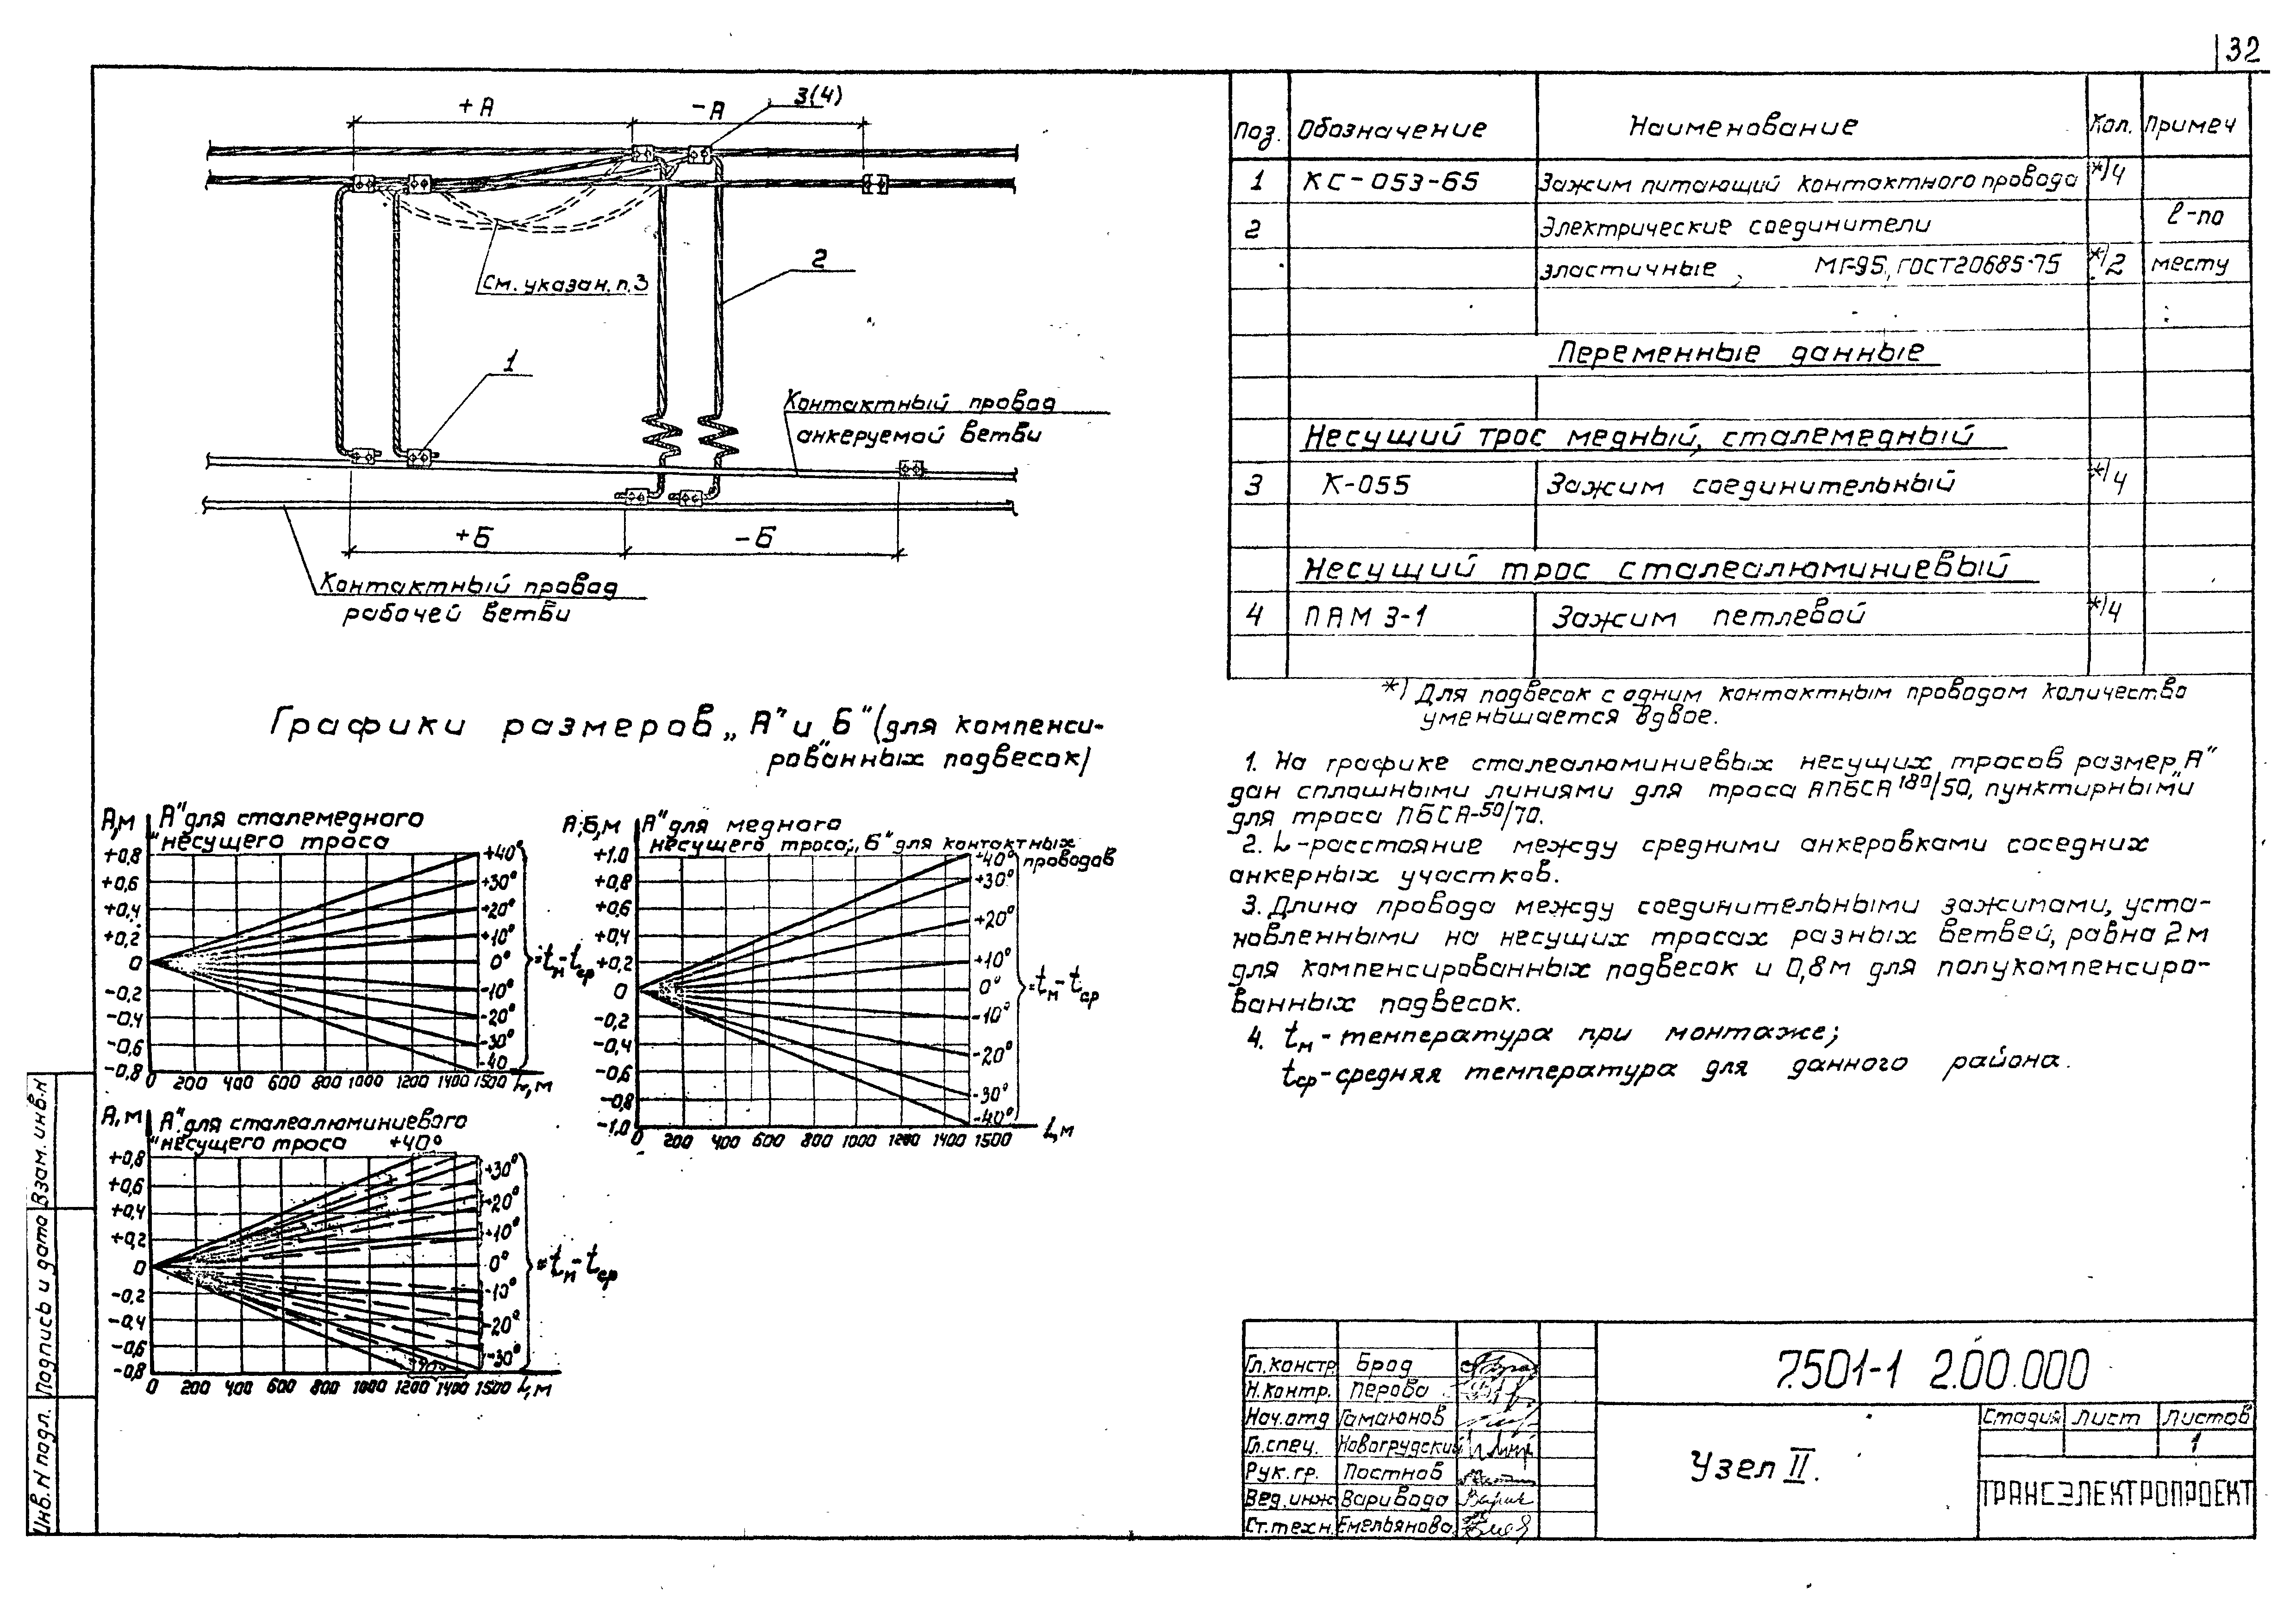 32
+А
-А
3(4)
2
См. указан. п.3
1
Контактный провод
анкеруемой ветви
+Б
-Б
Контактный провод
рабочей ветви
Графики размеров „А" и „Б" (для компенси-
рованных подвесок)
А,м
„А" для сталемедного
несущего троса
+0,8
+0,6
+0,4
+0,2
0
-0,2
-0,4
-0,6
-0,8
+40°
+30°
+20°
+10°
0°
-10°
-20°
-30°
-40
=tм-tср
0 200 400 600 800 1000 1200 1400 1500 L,м
А;Б,м
„А" для медного
несущего троса; „Б" для контактных
проводов
+1.0
+0,8
+0,6
+0,4
+0,2
0
-0,2
-0,4
-0,6
-0,8
-1,0
+40°
+30°
+20°
+10°
0°
-10°
-20°
-30°
-40°
=tм-tср
0 200 400 600 800 1000 1200 1400 1500 L,м
А,м
„А" для сталеалюминиевого
несущего троса
+40°
+0,8
+0,6
+0,4
+0,2
0
-0,2
-0,4
-0,6
-0,8
+30°
+20°
+10°
0°
-10°
-20°
-30°
-40°
=tм-tср
0 200 400 600 800 1000 1200 1400 1500 L,м
Поз. Обозначение Наименование Кол. Примеч
1 КС-053-65 Зажим питающий контактного провода *)4
2 Электрические соединители ℓ-по
эластичные, МГ-95, ГОСТ20685-75 *)2 месту
Переменные данные
Несущий трос медный, сталемедный
3 К-055 Зажим соединительный *)4
Несущий трос сталеалюминиевый
4 ПАМ 3-1 Зажим петлевой *)4
*) Для подвесок с одним контактным проводом количество
уменьшается вдвое.
1. На графике сталеалюминиевых несущих тросов размер „А"
дан сплошными линиями для троса АПБСА 180/50, пунктирными
для троса ПБСА-50/70.
2. L-расстояние между средними анкеровками соседних
анкерных участков.
3. Длина провода между соединительными зажимами, уста-
новленными на несущих тросах разных ветвей, равна 2м
для компенсированных подвесок и 0,8м для полукомпенсиро-
ванных подвесок.
4. tм-температура при монтаже;
tср-средняя температура для данного района.
Взам. инв.н
Подпись и дата
Инв. N подл.
Гл.констр. Брод
Н.контр. Перова
Нач.отд Гамаюнов
Гл.спец. Новогрудский
Рук.гр. Постнов
Вед.инж Варивода
Ст.техн. Емельянова
7.501-1 2.00.000
Узел II.
Стадия Лист Листов
1
ТРАНСЭЛЕКТРОПРОЕКТ